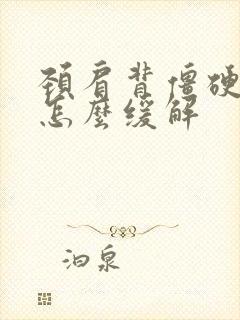 頸肩背僵硬
怎麼緩解
泊泉